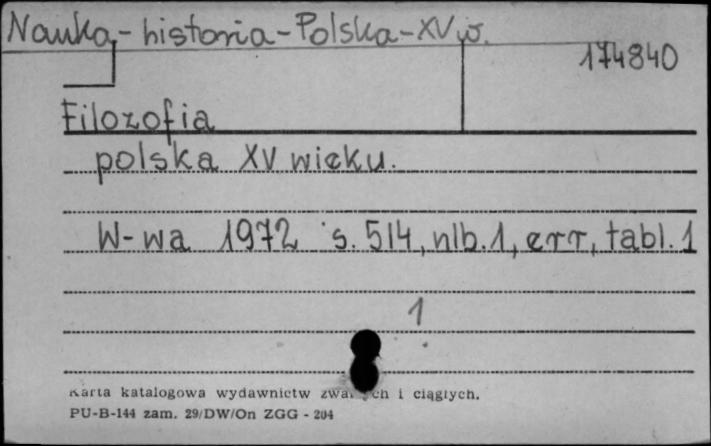 Nauka - historia - Polska - XV w.
174840
Filozofia
polska XV wieku.
W-wa 1972 s. 514, nlb. 1, err, tabl. 1
1
Karta katalogowa wydawnictw i ciągłych.
PU-B-144 zam. 29/DW/On ZGG - 204